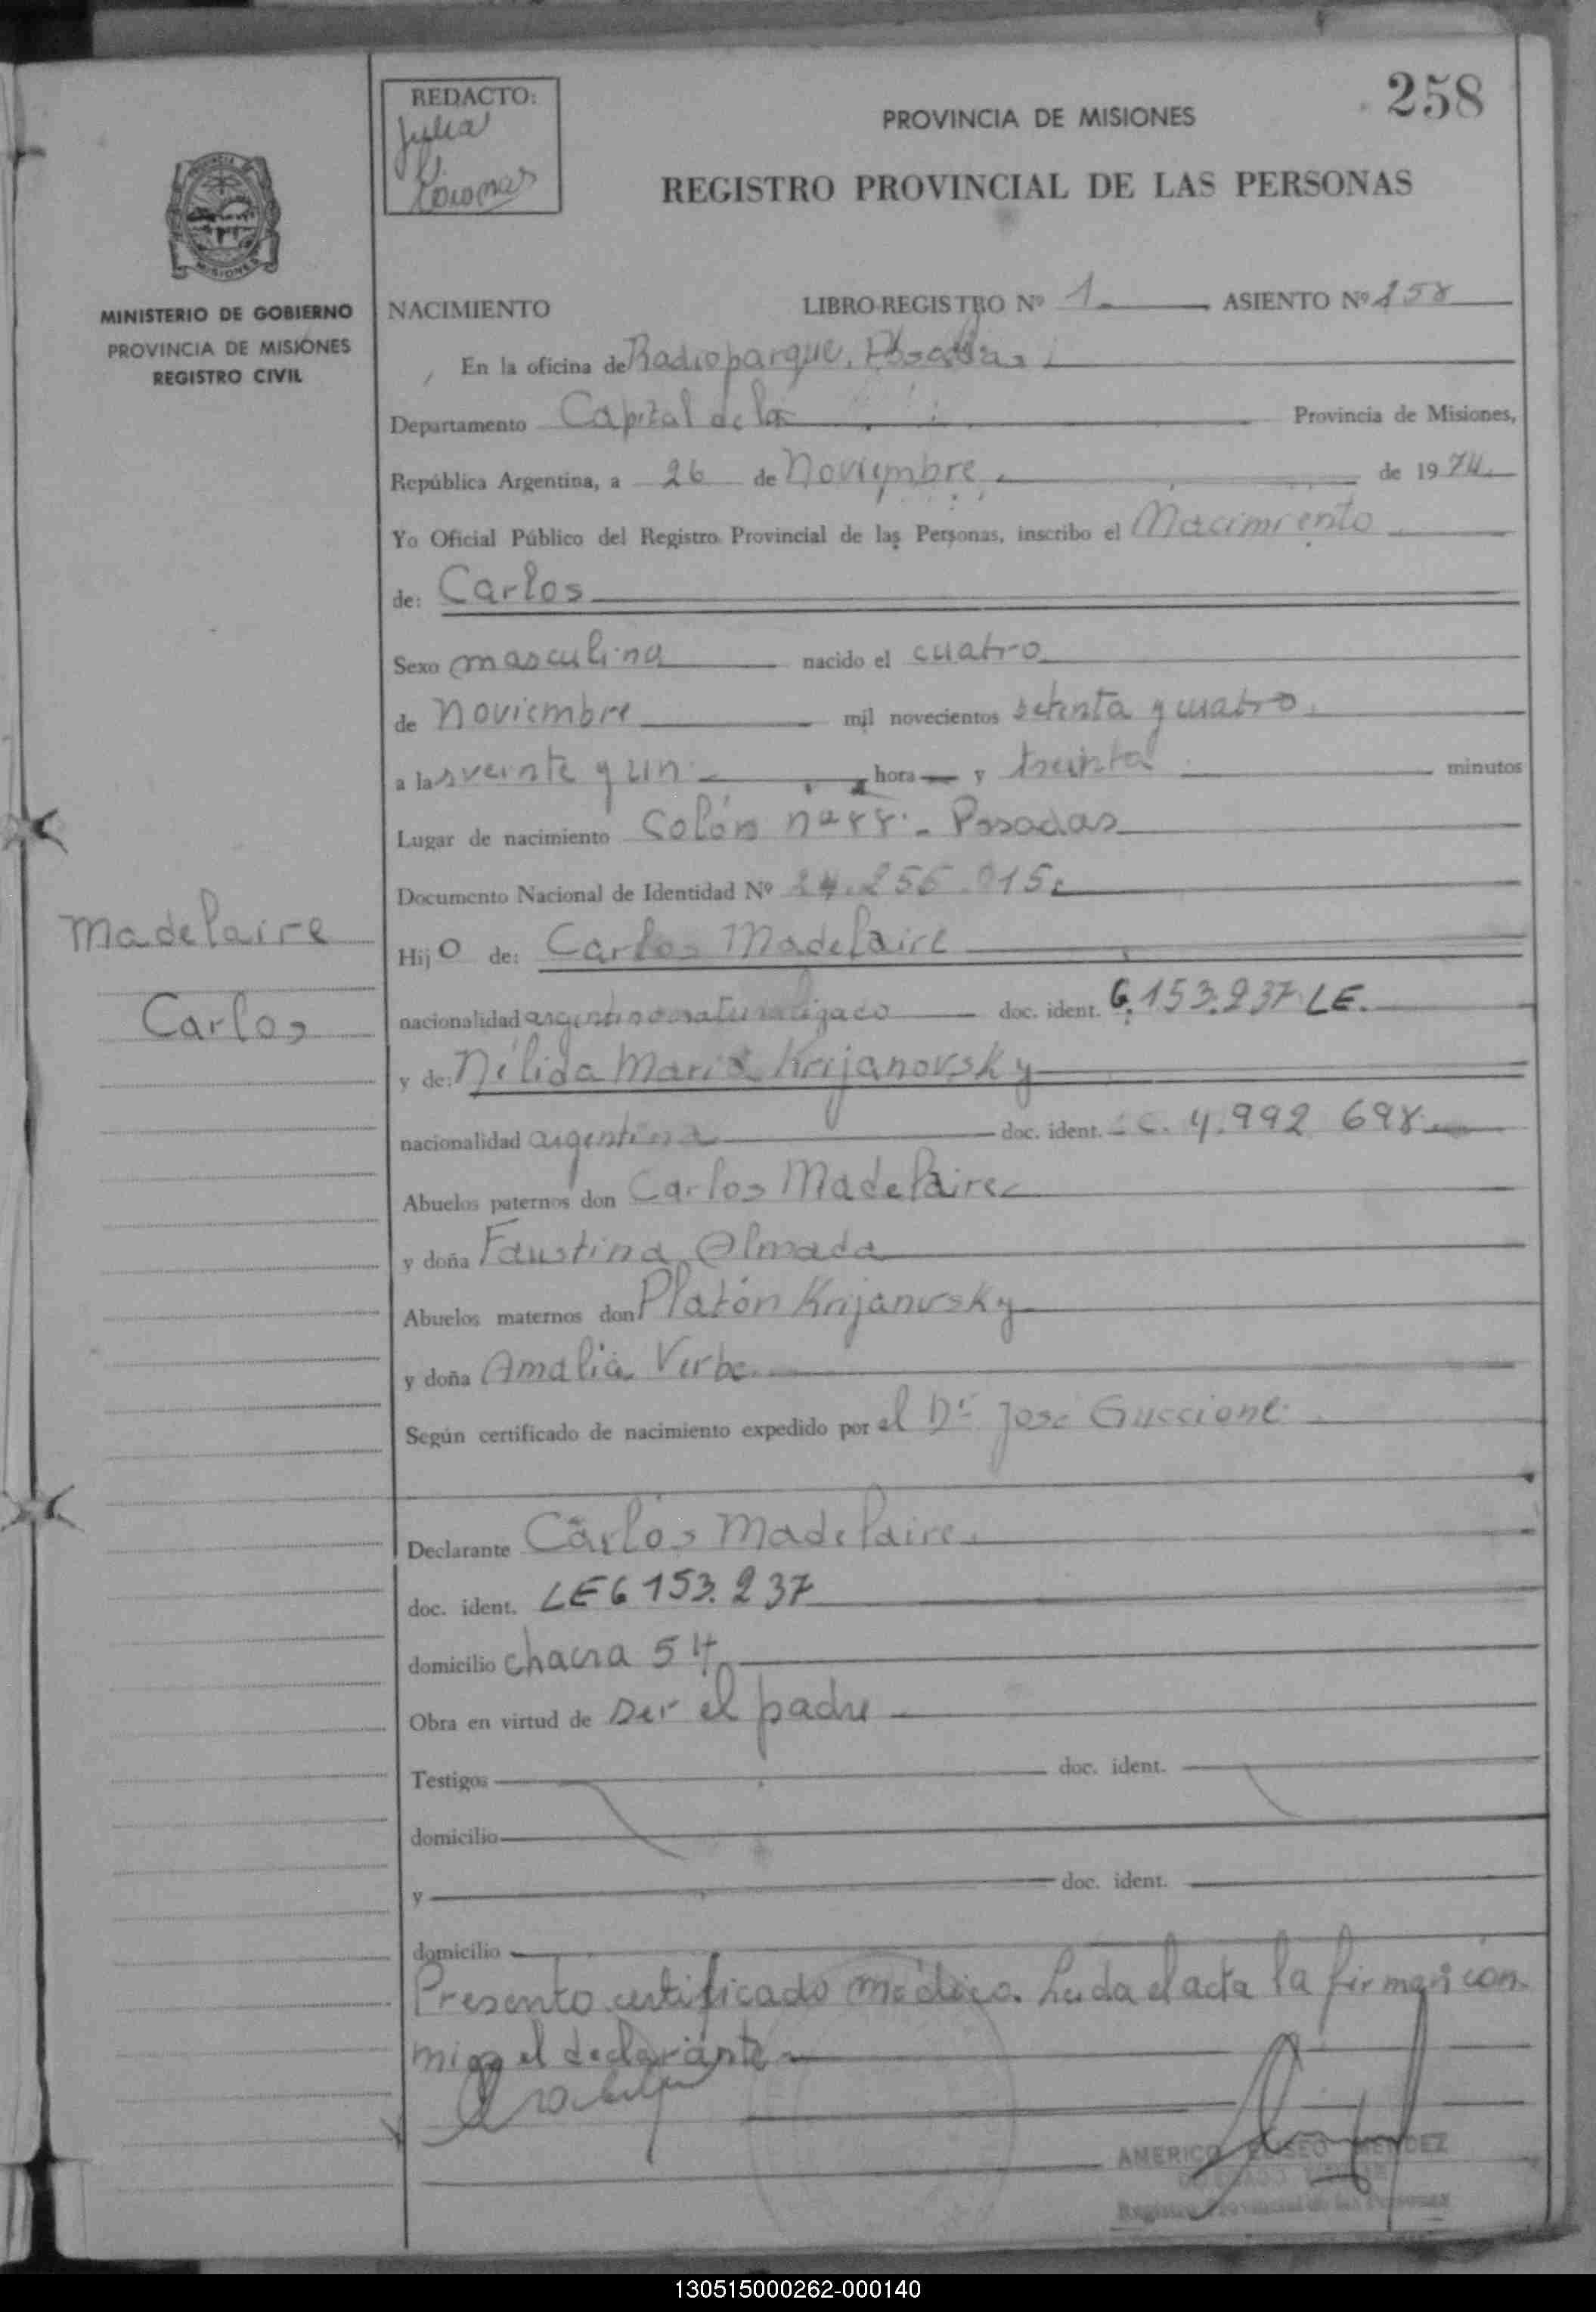 258
REDACTO:
Julia
PROVINCIA DE MISIONES
REGISTRO PROVINCIAL DE LAS PERSONAS
MISIONES
MINISTERIO DE GOBIERNO
PROVINCIA DE MISIONES
REGISTRO CIVIL
NACIMIENTO LIBRO REGISTRO Nº 1 ASIENTO Nº 258
En la oficina de Radioparque, Posadas
Departamento Capital de la Provincia de Misiones,
República Argentina, a 26 de Noviembre de 1974
Yo Oficial Público del Registro Provincial de las Personas, inscribo el Nacimiento
de: Carlos
Sexo masculino nacido el cuatro
de Noviembre mil novecientos setenta y cuatro
a las veinte y un hora y treinta minutos
Lugar de nacimiento Colón nº Posadas
Documento Nacional de Identidad Nº 24.256.015
Madelaire
Carlos
Hijo de: Carlos Madelaire
nacionalidad argentino naturalizado doc. ident. 6.153.237 LE.
y de: Nélida María Krijanovsky
nacionalidad argentina doc. ident. C. 4.992 698
Abuelos paternos don Carlos Madelaire
y doña Faustina Olmada
Abuelos maternos don Platón Krijanosky
y doña Amalia Verbe
Según certificado de nacimiento expedido por el Dr Jose Guccione
Declarante Carlos Madelaire
doc. ident. LE 6 153.237
domicilio chacra 54
Obra en virtud de ser el padre
Testigos doc. ident.
domicilio
y doc. ident.
domicilio
Presento certificado médico. Leida el acta la firman con
migo el declarante
AMERICO ELISEO MENDEZ
Registro Provincial de las Personas
130515000262-000140